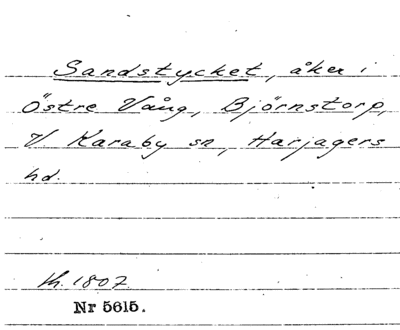 Sandstycket, åker i
Östre Vång, Björnstorp,
V. Karaby sn, Harjagers
hd.
kh. 1807
Nr 5615.